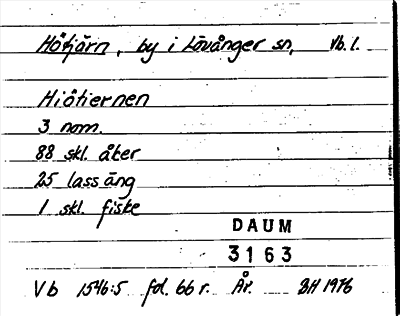 Hötjärn, by i Lövånger sn, Vb.l.
Hiötiernen
3 nom.
88 skl. åker
25 lass äng
1 skl. fiske
DAUM
3163
Vb 1546:5 fol. 66 r. År. BH 1976